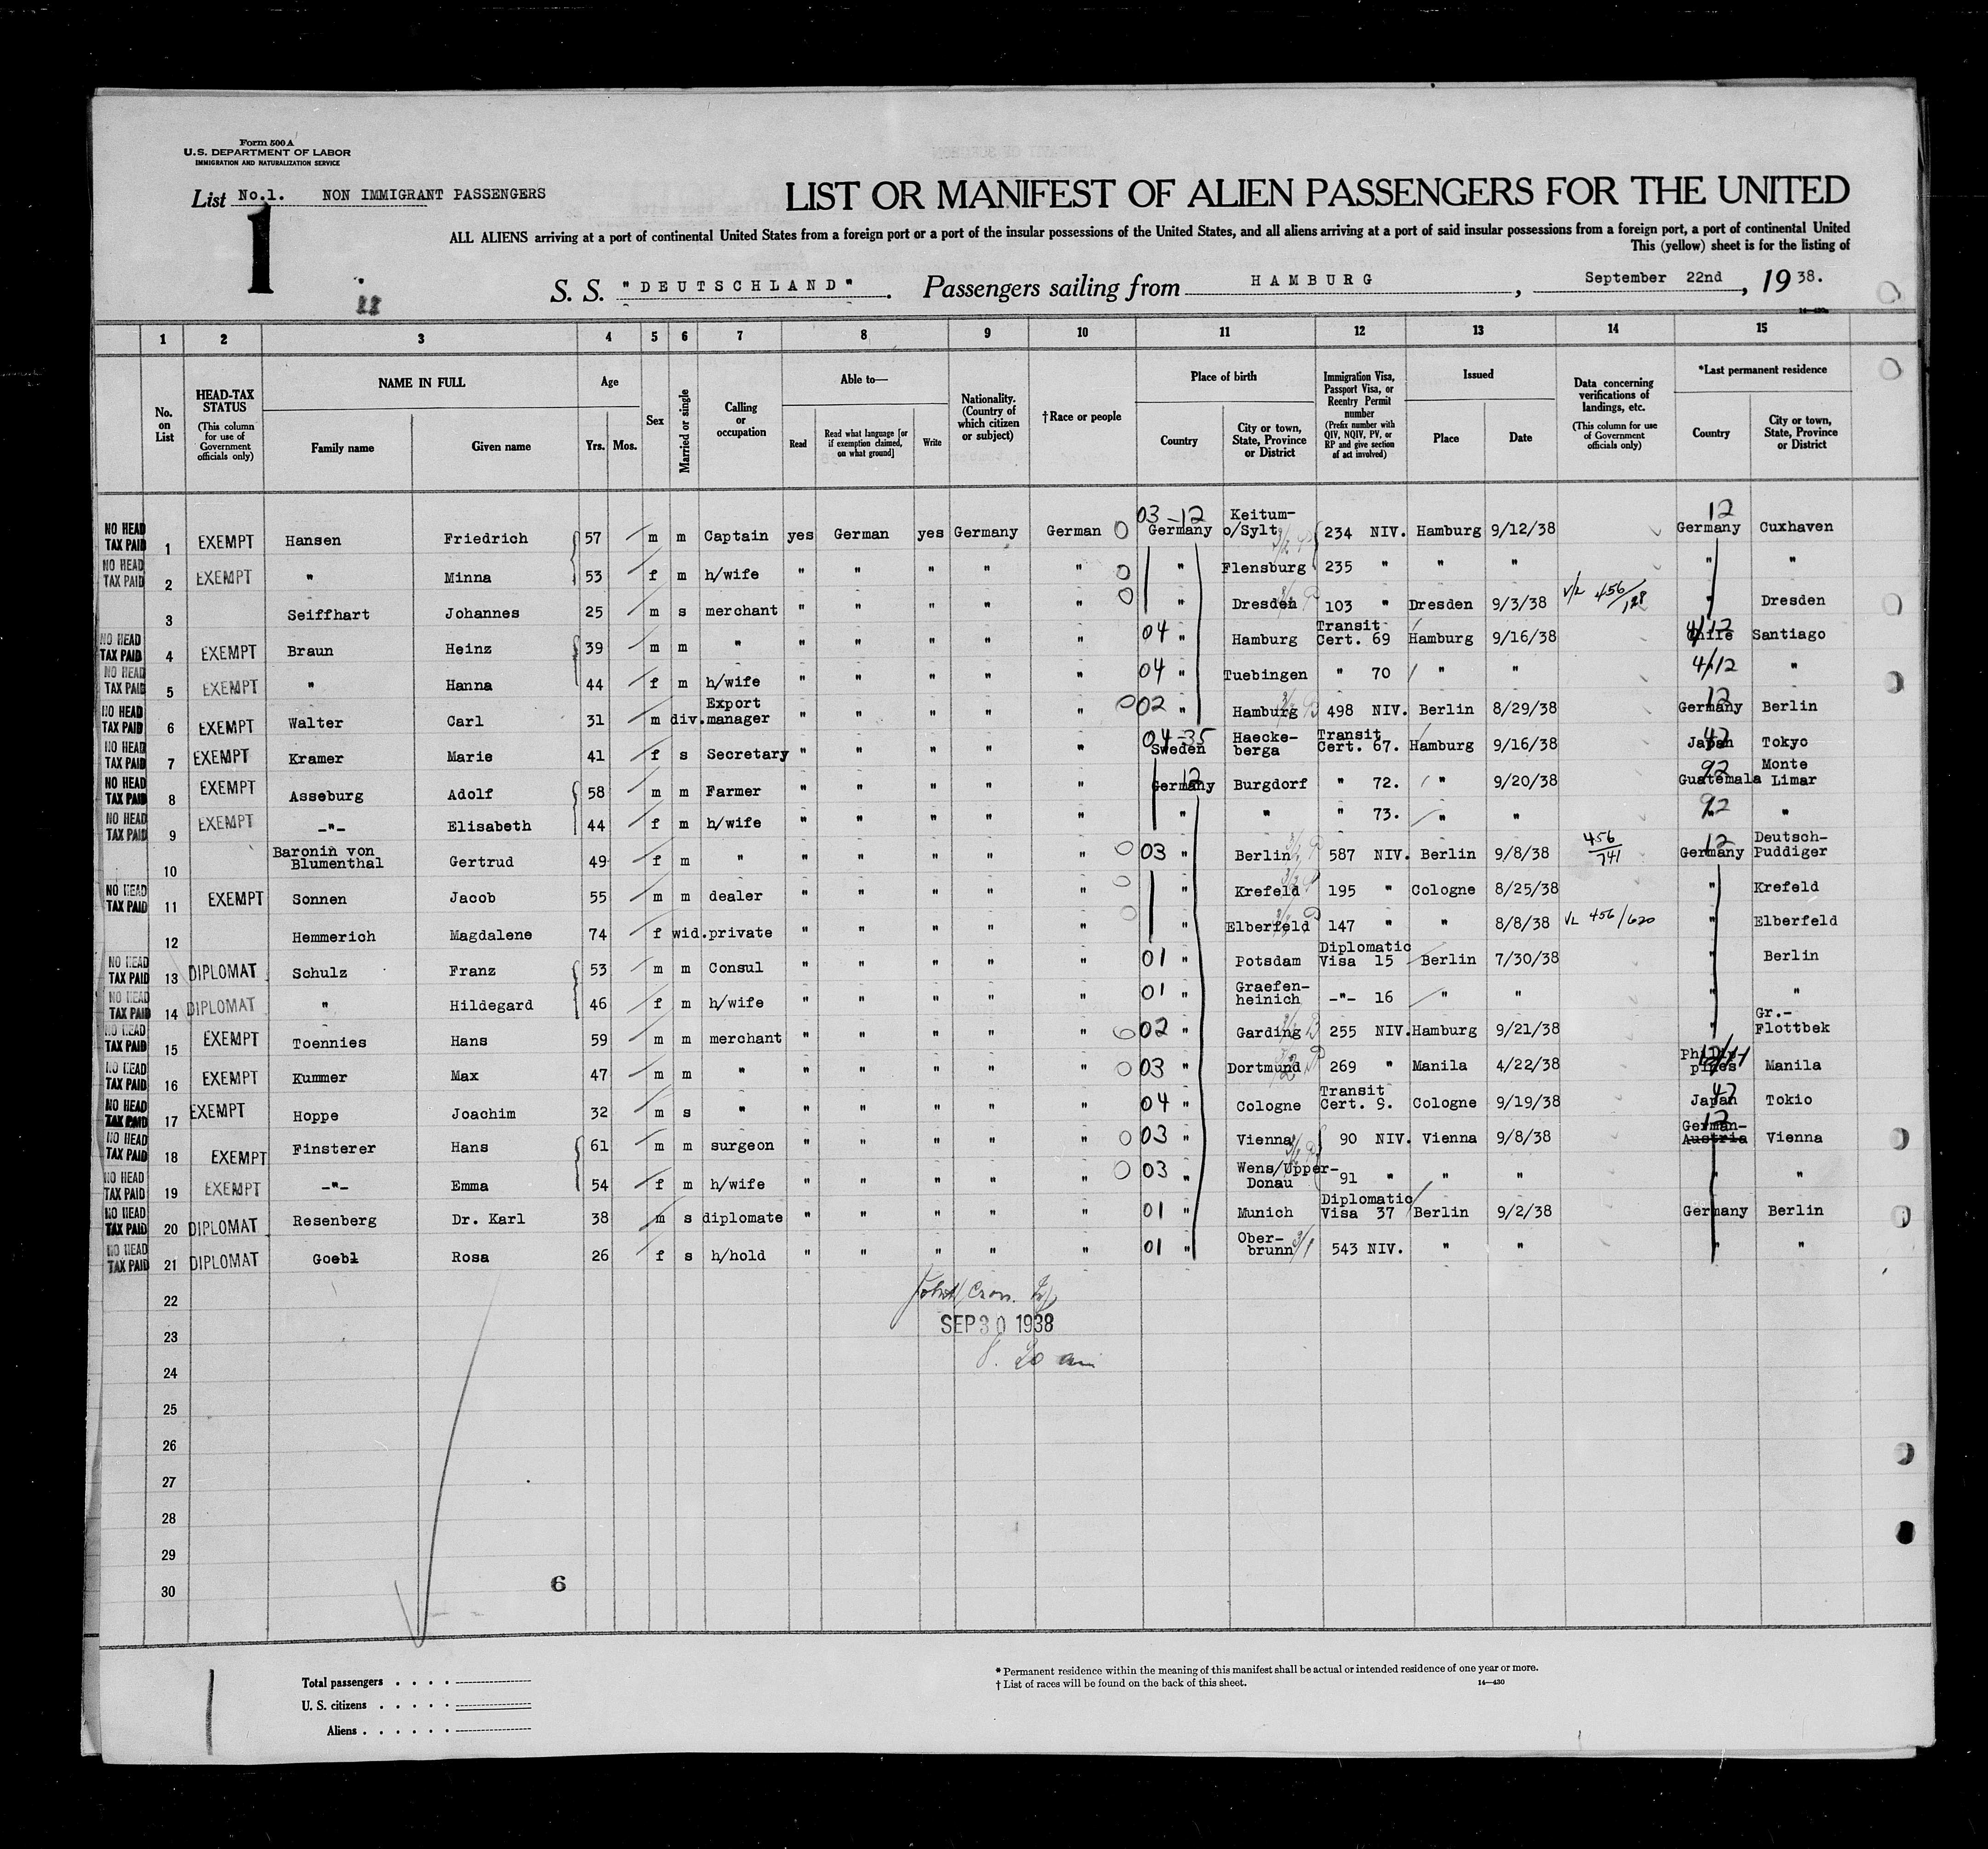 Form 500 A
U.S. DEPARTMENT OF LABOR
IMMIGRATION AND NATURALIZATION SERVICE
List No.1. NON IMMIGRANT PASSENGERS
1
LIST OR MANIFEST OF ALIEN PASSENGERS FOR THE UNITED
ALL ALIENS arriving at a port of continental United States from a foreign port or a port of the insular possessions of the United States, and all aliens arriving at a port of said insular possessions from a foreign port, a port of continental United
This (yellow) sheet is for the listing of
S. S. "DEUTSCHLAND". Passengers sailing from HAMBURG, September 22nd, 1938.
1 2 3 4 5 6 7 8 9 10 11 12 13 14 15
No. on List
HEAD-TAX STATUS (This column for use of Government officials only)
NAME IN FULL Family name Given name
Age Yrs. Mos.
Sex
Married or single
Calling or occupation
Able to— Read Read what language [or if exemption claimed, on what ground] Write
Nationality. (Country of which citizen or subject)
†Race or people
Place of birth Country City or town, State, Province or District
Immigration Visa, Passport Visa, or Reentry Permit number (Prefix number with QIV, NQIV, PV, or RP and give section of act involved)
Issued Place Date
Data concerning verifications of landings, etc. (This column for use of Government officials only)
*Last permanent residence Country City or town, State, Province or District
NO HEAD TAX PAID 1 EXEMPT Hansen Friedrich 57 m m Captain yes German yes Germany German 03-12 Germany Keitum- o/Sylt 234 NIV. Hamburg 9/12/38 12 Germany Cuxhaven
NO HEAD TAX PAID 2 EXEMPT " Minna 53 f m h/wife " " " " " " Flensburg 235 " " " " "
3 Seiffhart Johannes 25 m s merchant " " " " " " Dresden 103 " Dresden 9/3/38 V/L 456/128 " Dresden
NO HEAD TAX PAID 4 EXEMPT Braun Heinz 39 m m " " " " " " 04 " Hamburg Transit Cert. 69 Hamburg 9/16/38 4/12 Chile Santiago
NO HEAD TAX PAID 5 EXEMPT " Hanna 44 f m h/wife " " " " " 04 " Tuebingen " 70 " " 4/12 "
NO HEAD TAX PAID 6 EXEMPT Walter Carl 31 m div. Export manager " " " " " 02 " Hamburg 498 NIV. Berlin 8/29/38 12 Germany Berlin
NO HEAD TAX PAID 7 EXEMPT Kramer Marie 41 f s Secretary " " " " " 04-35 Sweden Haecke- berga Transit Cert. 67. Hamburg 9/16/38 Japan Tokyo
NO HEAD TAX PAID 8 EXEMPT Asseburg Adolf 58 m m Farmer " " " " " 12 Germany Burgdorf " 72. " 9/20/38 92 Guatemala Monte Limar
NO HEAD TAX PAID 9 EXEMPT -"- Elisabeth 44 f m h/wife " " " " " " " " 73. " " 92 "
10 Baronin von Blumenthal Gertrud 49 f m " " " " " " 03 " Berlin 587 NIV. Berlin 9/8/38 456/741 12 Germany Deutsch- Puddiger
NO HEAD TAX PAID 11 EXEMPT Sonnen Jacob 55 m m dealer " " " " " " Krefeld 195 " Cologne 8/25/38 " Krefeld
12 Hemmerich Magdalene 74 f wid. private " " " " " " Elberfeld 147 " " 8/8/38 VL 456/620 " Elberfeld
NO HEAD TAX PAID 13 DIPLOMAT Schulz Franz 53 m m Consul " " " " " 01 " Potsdam Diplomatic Visa 15 Berlin 7/30/38 " Berlin
NO HEAD TAX PAID 14 DIPLOMAT " Hildegard 46 f m h/wife " " " " " 01 " Graefen- heinich -"- 16 " " " "
NO HEAD TAX PAID 15 EXEMPT Toennies Hans 59 m m merchant " " " " " 02 " Garding 255 NIV. Hamburg 9/21/38 " Gr.- Flottbek
NO HEAD TAX PAID 16 EXEMPT Kummer Max 47 m m " " " " " " 03 " Dortmund 269 " Manila 4/22/38 Philip- pines Manila
NO HEAD TAX PAID 17 EXEMPT Hoppe Joachim 32 m s " " " " " " 04 " Cologne Transit Cert. 9. Cologne 9/19/38 Japan Tokio
NO HEAD TAX PAID 18 EXEMPT Finsterer Hans 61 m m surgeon " " " " " 03 " Vienna 90 NIV. Vienna 9/8/38 12 German- Austria Vienna
NO HEAD TAX PAID 19 EXEMPT -"- Emma 54 f m h/wife " " " " " 03 " Wens/Upper- Donau 91 " " " " "
NO HEAD TAX PAID 20 DIPLOMAT Resenberg Dr. Karl 38 m s diplomate " " " " " 01 " Munich Diplomatic Visa 37 Berlin 9/2/38 Germany Berlin
NO HEAD TAX PAID 21 DIPLOMAT Goebl Rosa 26 f s h/hold " " " " " 01 " Ober- brunn 3/1 543 NIV. " " " "
22
23 SEP 30 1938
24 8. 20 am
25
26
27
28
29
30
6
Total passengers
U. S. citizens
Aliens
* Permanent residence within the meaning of this manifest shall be actual or intended residence of one year or more.
† List of races will be found on the back of this sheet. 14—430